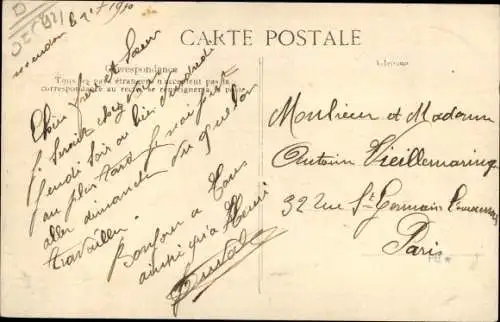 CARTE POSTALE
Correspondance
Tous les pays étrangers n'acceptent pas la
correspondance au recto se renseigner à la poste
Adresse
Chère frère et Sœur
Je serait chez
jeudi soir ou bien vendredi
au plus tard Je n'ai put
aller dimanche vu que l'on
travailler
Bonjour a Tous
ainsi qu'a Henri
Monsieur et Madame
Antoin Vieillemaringe
32 Rue St Germain
Paris